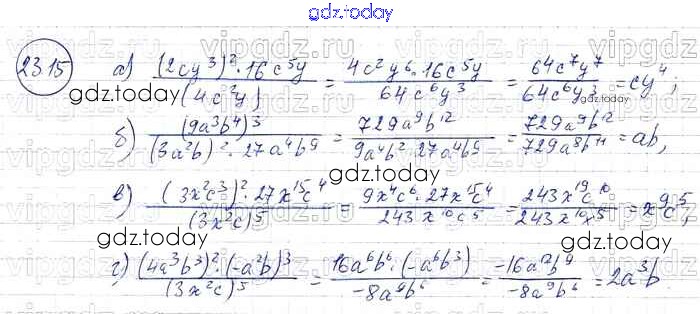 gdz.today
23.15
а) (2cy³)²·16c⁵y / (4c²y) = 4c²y⁶·16c⁵y / 64c⁶y³ = 64c⁷y⁷ / 64c⁶y³ = cy⁴;
gdz.today
gdz.today
б) (9a³b⁴)³ / (3a²b)²·27a⁴b⁹ = 729a⁹b¹² / 9a⁴b²·27a⁴b⁹ = 729a⁹b¹² / 729a⁸b¹¹ = ab,
gdz.today
в) (3x²c³)²·27x¹⁵c⁴ / (3x²c)⁵ = 9x⁴c⁶·27x¹⁵c⁴ / 243x¹⁰c⁵ = 243x¹⁹c¹⁰ / 243x¹⁰x⁵ = x⁹c⁵,
gdz.today
gdz.today
г) (4a³b³)²·(-a²b)³ / (3x²c)⁵ = 16a⁶b⁶·(-a⁶b³) / -8a⁹b⁶ = -16a¹²b⁹ / -8a⁹b⁶ = 2a³b
gdz.today